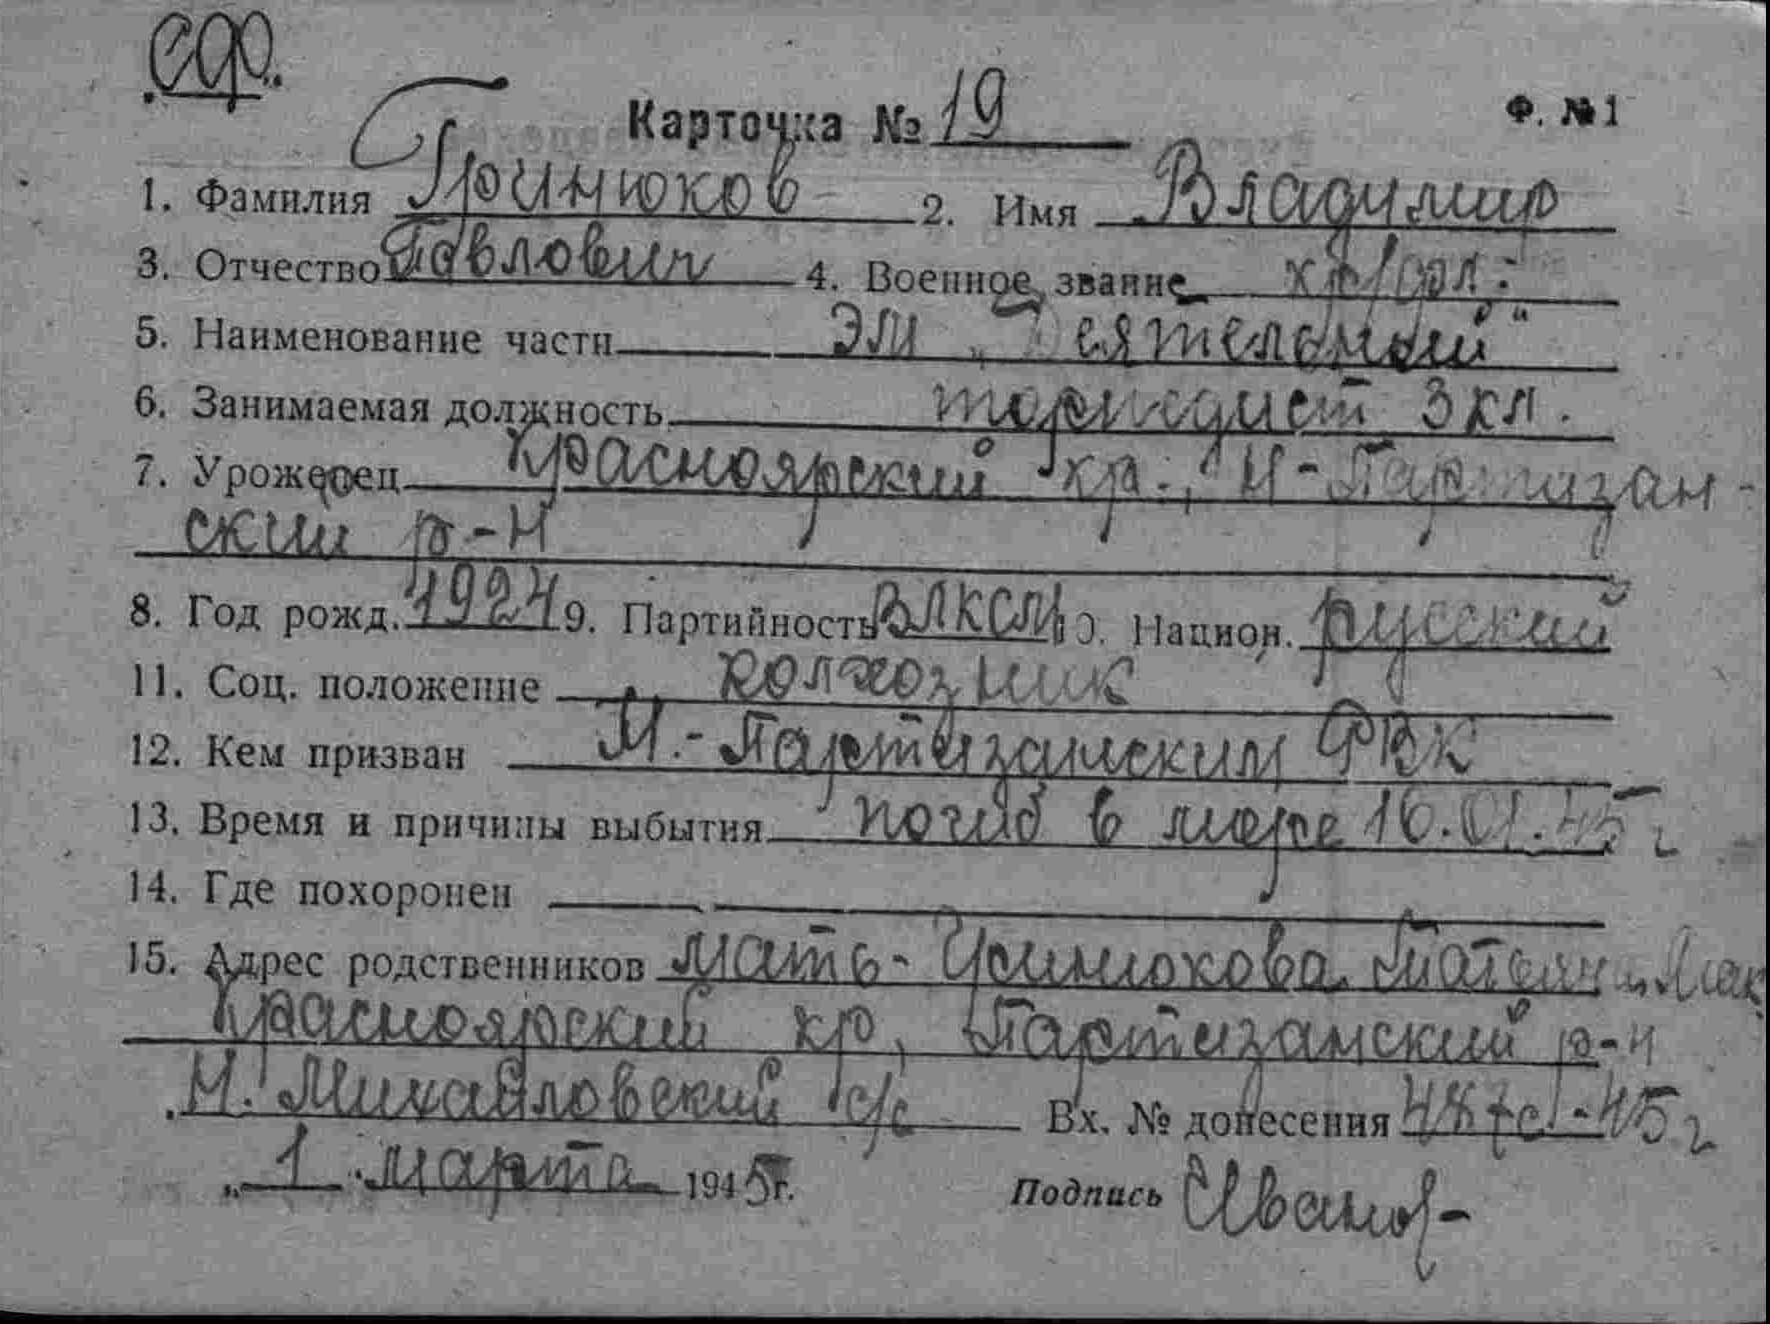 сф.
Карточка № 19 Ф. № 1
1. Фамилия Гринюков 2. Имя Владимир
3. Отчество Павлович 4. Военное звание кр/фл.
5. Наименование части ЭМ „Деятельный"
6. Занимаемая должность торпедист 3 кл.
7. Уроженец Красноярский кр., Н-Партизан-
ский р-н
8. Год рожд. 1924 9. Партийность ВЛКСМ 10. Национ. русский
11. Соц. положение колхозник
12. Кем призван Н.-Партизанским РВК
13. Время и причины выбытия погиб в море 16.01.45 г
14. Где похоронен
15. Адрес родственников мать - Гринюкова
Красноярский кр, Партизанский р-н
Н. Михайловский с/с Вх. № донесения
„1" марта 1945г. Подпись Иванов